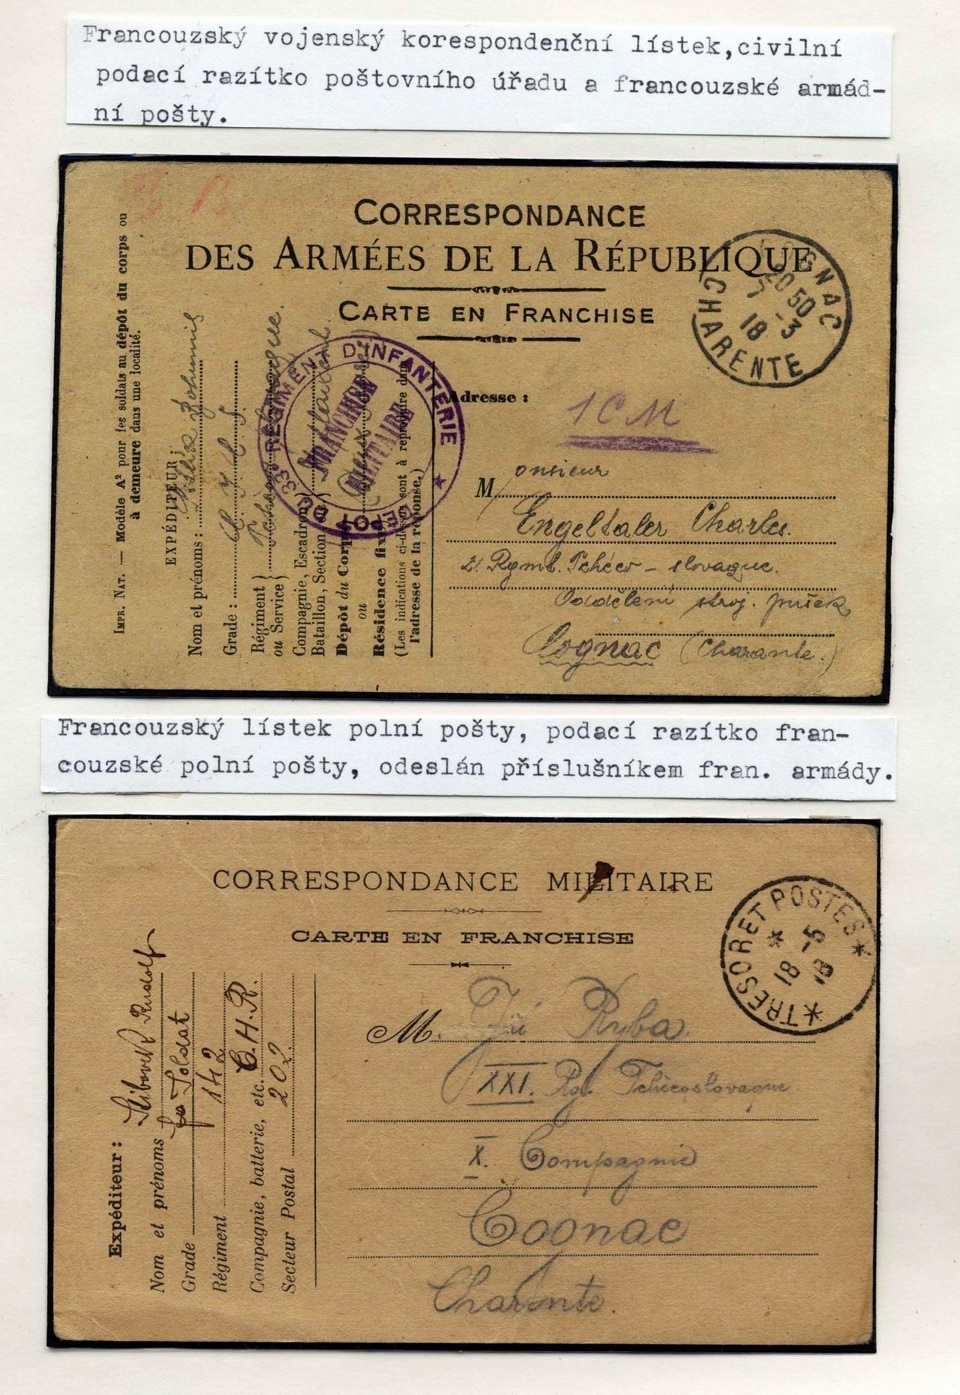 Francouzský vojenský korespondenční lístek,civilní
podací razítko poštovního úřadu a francouzské armád-
ní pošty.
CORRESPONDANCE
DES ARMÉES DE LA RÉPUBLIQUE
CARTE EN FRANCHISE
COGNAC
20 50
7 -3
18
CHARENTE
IMPR. NAT. — Modèle A² pour les soldats au dépôt du corps ou
à demeure dans une localité.
EXPÉDITEUR:
Nom et prénoms :
Grade :
Régiment
ou Service
Compagnie, Escadron,
Bataillon, Section
Dépôt du Corps
ou
Résidence fixe
(Les indications ci-dessus sont à reproduire dans
l'adresse de la réponse.)
DÉPOT DU 33e RÉGIMENT D'INFANTERIE
FRANCHISE
MILITAIRE
Adresse :
1CM
Monsieur
Engeltaler Charles.
21. Rgmt. Tchéco-slovaque.
Oddělení stroj. pušek
Cognac (Charante.)
Francouzský lístek polní pošty, podací razítko fran-
couzské polní pošty, odeslán příslušníkem fran. armády.
CORRESPONDANCE MILITAIRE
CARTE EN FRANCHISE
*TRESOR ET POSTES*
*
18 -5
18
Expéditeur :
Nom et prénoms Rudolf
Grade Soldat
Régiment 142
Compagnie, batterie, etc. C.H.R.
Secteur Postal 202
M. Jiří Ryba
XXI. Rg. Tchécoslovaque
X. Compagnie
Cognac
Charente.